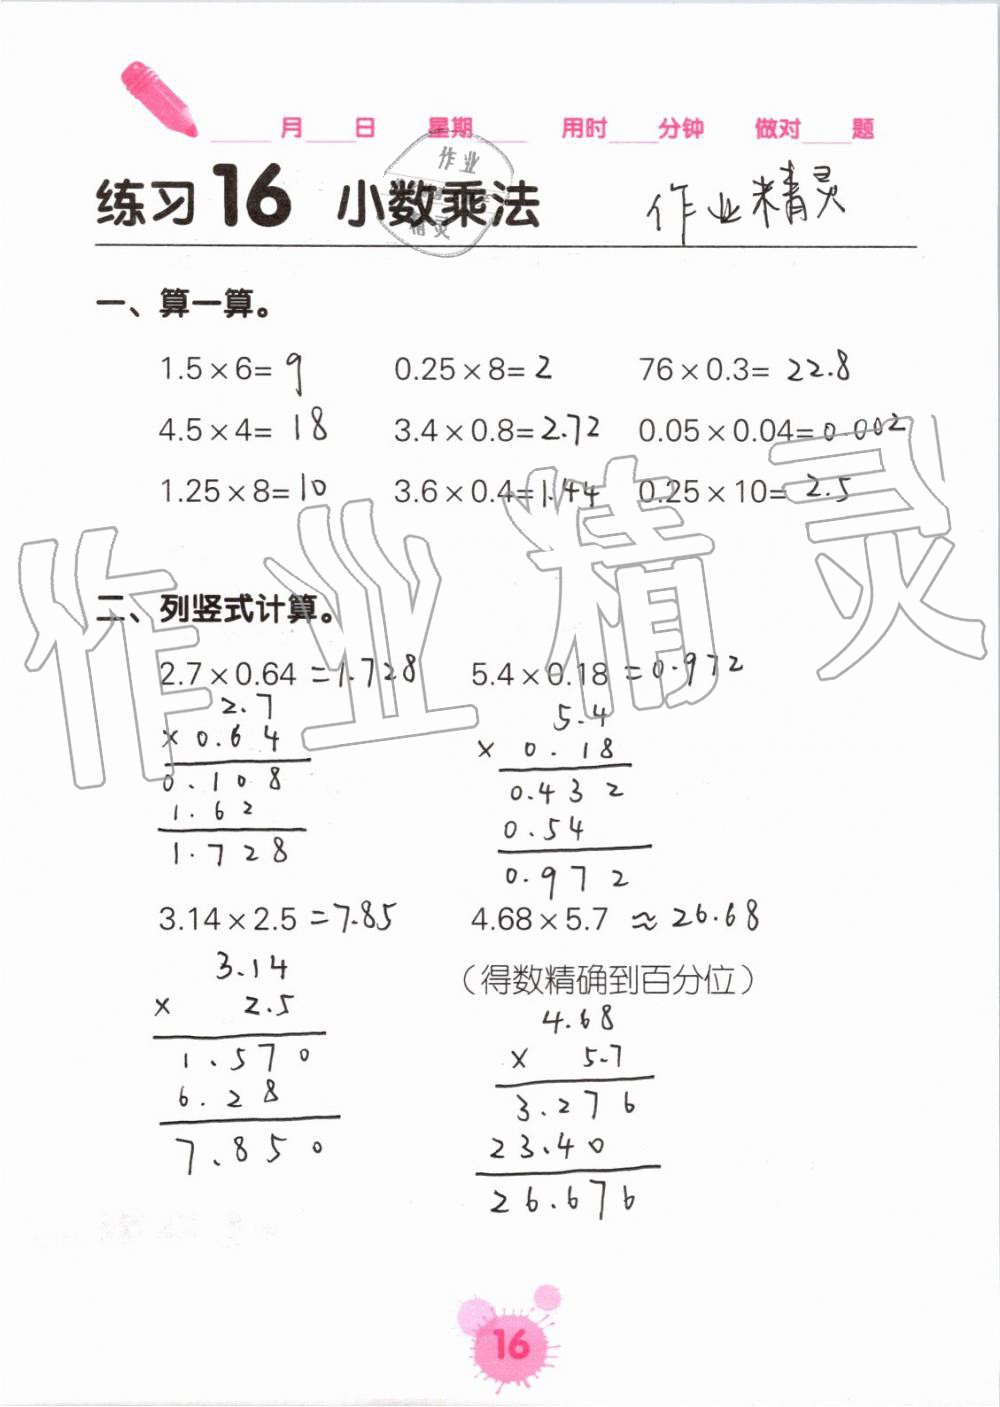 ____月____日 星期____ 用时____分钟 做对____题
练习16 小数乘法 作业精灵
作业
精灵
一、算一算。
1.5×6=9 0.25×8=2 76×0.3=22.8
4.5×4=18 3.4×0.8=2.72 0.05×0.04=0.002
1.25×8=10 3.6×0.4=1.44 0.25×10=2.5
作业精灵
二、列竖式计算。
2.7×0.64=1.728 5.4×0.18=0.972
2.7
×0.64
0.108
1.62
1.728
5.4
×0.18
0.432
0.54
0.972
3.14×2.5=7.85 4.68×5.7≈26.68
（得数精确到百分位）
3.14
×2.5
1.570
6.28
7.850
4.68
×5.7
3.276
23.40
26.676
16